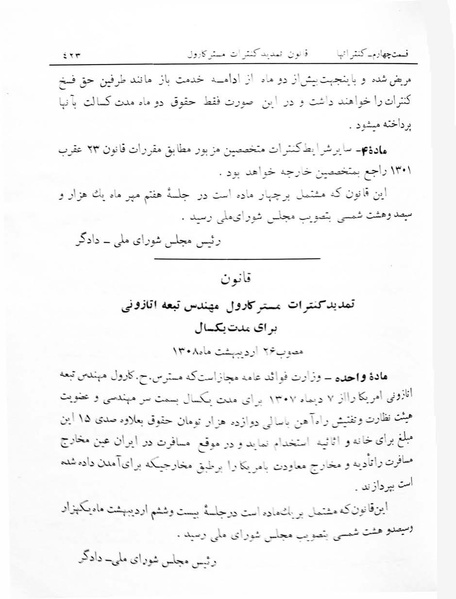 قسمت چهارم ـ کنتراتها قانون تمدید کنترات مستر کارول ۴۲۳
مریض شده و باینجهت بیش از دو ماه از ادامه خدمت باز مانند طرفین حق فسخ
کنترات را خواهند داشت و در این صورت فقط حقوق دو ماه مدت کسالت بآنها
پرداخته میشود .
مادهٔ ۴ـ سایر شرایط کنترات متخصصین مزبور مطابق مقررات قانون ۲۳ عقرب
۱۳۰۱ راجع بمتخصصین خارجه خواهد بود .
این قانون که مشتمل بر چهار ماده است در جلسهٔ هفتم مهر ماه یك هزار و
سیصد و هشت شمسی بتصویب مجلس شورای ملی رسید .
رئیس مجلس شورای ملی ـ دادگر
قانون
تمدید کنترات مستر کارول مهندس تبعه اتازونی
برای مدت یکسال
مصوب ۲۶ اردیبهشت ماه ۱۳۰۸
مادهٔ واحده ـ وزارت فوائد عامه مجاز است که مستر س.ح. کارول مهندس تبعه
اتازونی امریکا را از ۷ دیماه ۱۳۰۷ برای مدت یکسال بسمت سر مهندسی و عضویت
هیئت نظارت و تفتیش راه آهن باسالی دوازده هزار تومان حقوق بعلاوه صدی ۱۵ این
مبلغ برای خانه و اثاثیه استخدام نماید و در موقع مسافرت در ایران عین مخارج
مسافرت را تأدیه و مخارج معاودت بامریکا را بر طبق مخارجیکه برای آمدن داده شده
است بپردازند .
این قانون که مشتمل بر یك ماده است در جلسهٔ بیست و ششم اردیبهشت ماه یکهزار
وسیصد و هشت شمسی بتصویب مجلس شورای ملی رسید .
رئیس مجلس شورای ملی ـ دادگر